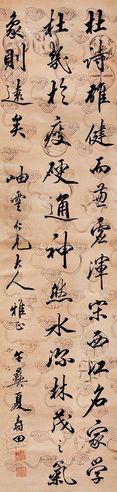 杜詩雄健而兼虛渾宋西江名家學
杜幾於瘦硬通神然水深林茂之氣
象則遠矣 岫雲仁兄大人 雅正 午彝夏壽田